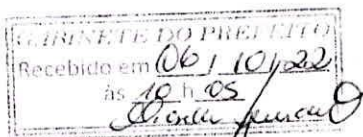 GABINETE DO PREFEITO
Recebido em 06 / 10 / 22
às 10 h 05